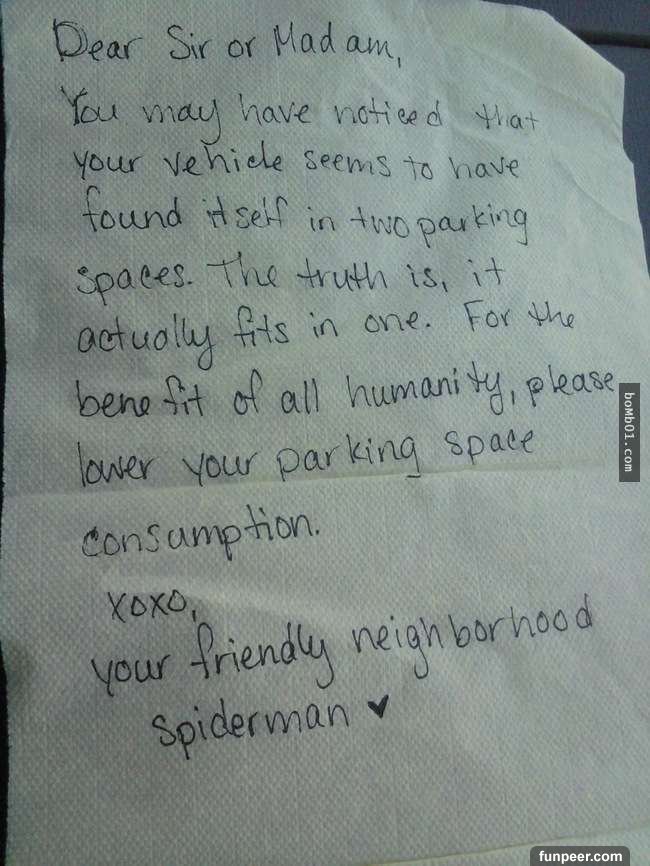 Dear Sir or Madam,
You may have noticed that
your vehicle seems to have
found itself in two parking
spaces. The truth is, it
actually fits in one. For the
benefit of all humanity, please
lower your parking space
consumption.
xoxo,
your friendly neighborhood
spiderman ♥
boMb01.com
funpeer.com